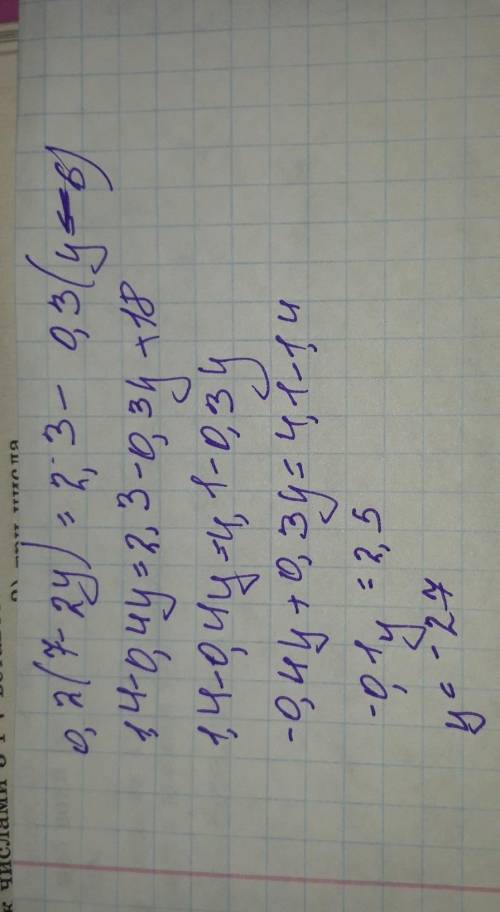 0,2(7-2y)=2,3-0,3(y-6)
1,4-0,4y=2,3-0,3y+18
1,4-0,4y=4,1-0,3y
-0,4y+0,3y=4,1-1,4
-0,1y=2,5
y=-27
к числами